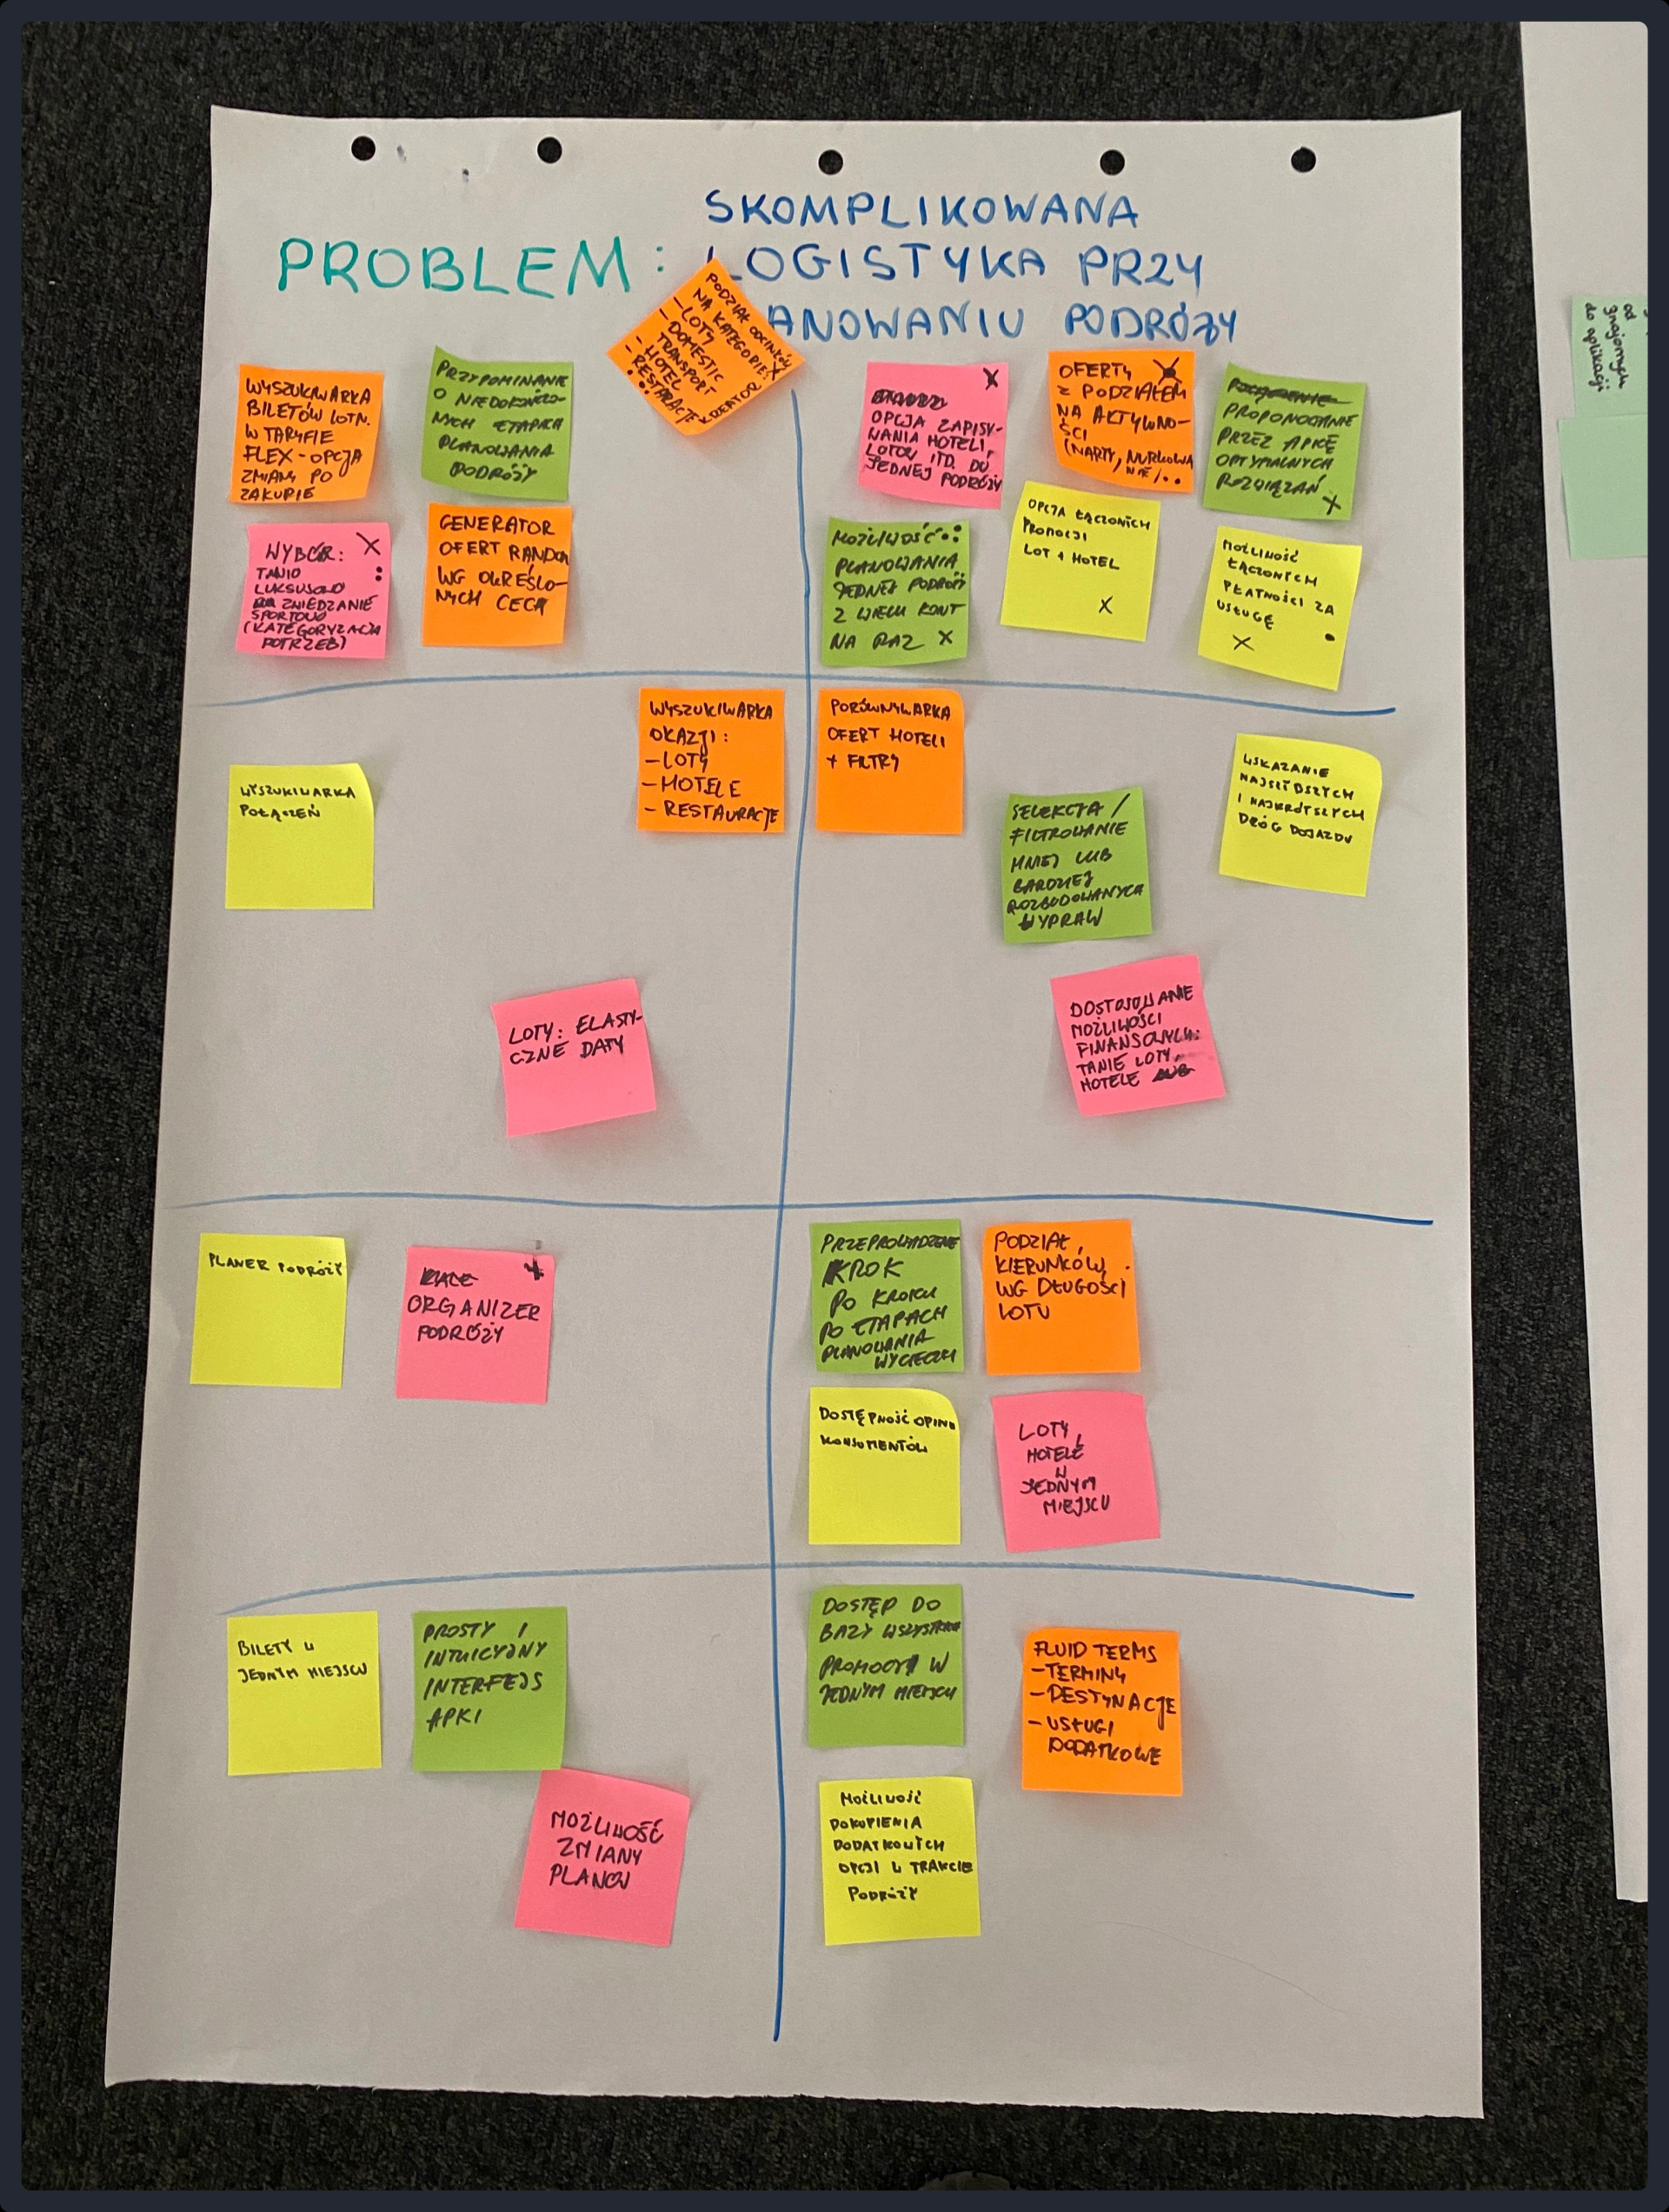 SKOMPLIKOWANA
PROBLEM: LOGISTYKA PRZY
ANOWANIU PODRÓŻY
PODZIAŁ ODCINKÓW
NA KATEGORIE:
- LOTY
- DOMESTIC
TRANSPORT
- HOTEL
- RESTAURACJE
WYSZUKIWARKA
BILETÓW LOTN.
W TARYFIE
FLEX - OPCJA
ZMIANY PO
ZAKUPIE
PRZYPOMINANIE
O NIEDOKOŃCZO-
NYCH ETAPACH
PLANOWANIA
PODRÓŻY
WYBÓR: X
TANIO
LUKSUSOWO
ZWIEDZANIE
SPORTOWO
(KATEGORYZACJA
POTRZEB)
GENERATOR
OFERT RANDOM
WG OKREŚLO-
NYCH CECH
X
OPCJA ZAPISY-
WANIA HOTELI,
LOTÓW ITD. DO
JEDNEJ PODRÓŻY
OFERTY X
Z PODZIAŁEM
NA AKTYWNO-
ŚCI
(NARTY, NURKOWA
NIE/..
PROPONOWANIE
PRZEZ APKĘ
OPTYMALNYCH
ROZWIĄZAŃ
X
MOŻLIWOŚĆ
PLANOWANIA
JEDNEJ PODRÓŻY
Z WIELU KONT
NA RAZ X
OPCJA ŁĄCZONYCH
PROMOCJI
LOT + HOTEL
X
MOŻLIWOŚĆ
ŁĄCZONYCH
PŁATNOŚCI ZA
USŁUGĘ
X
WYSZUKIWARKA
POŁĄCZEŃ
WYSZUKIWARKA
OKAZJI:
- LOTY
- HOTELE
- RESTAURACJE
LOTY: ELASTY-
CZNE DATY
PORÓWNYWARKA
OFERT HOTELI
+ FILTRY
SELEKCJA /
FILTROWANIE
MNIEJ LUB
BARDZIEJ
ROZBUDOWANYCH
WYPRAW
WSKAZANIE
NAJSZYBSZYCH
I NAJKRÓTSZYCH
DRÓG DOJAZDU
DOSTOSOWANIE
MOŻLIWOŚCI
FINANSOWYCH:
TANIE LOTY,
HOTELE
PLANER PODRÓŻY
ORGANIZER
PODRÓŻY
PRZEPROWADZENIE
KROK
PO KROKU
PO ETAPACH
PLANOWANIA
WYCIECZKI
PODZIAŁ
KIERUNKÓW
WG DŁUGOŚCI
LOTU
DOSTĘPNOŚĆ OPINII
KONSUMENTÓW
LOTY,
HOTELE
W
JEDNYM
MIEJSCU
BILETY W
JEDNYM MIEJSCU
PROSTY I
INTUICYJNY
INTERFEJS
APKI
MOŻLIWOŚĆ
ZMIANY
PLANÓW
DOSTĘP DO
BAZY WSZYSTKICH
PROMOCJI W
JEDNYM MIEJSCU
FLUID TERMS
- TERMINY
- DESTYNACJE
- USŁUGI
DODATKOWE
MOŻLIWOŚĆ
DOKUPIENIA
DODATKOWYCH
OPCJI W TRAKCIE
PODRÓŻY
od
znajomych
do aplikacji